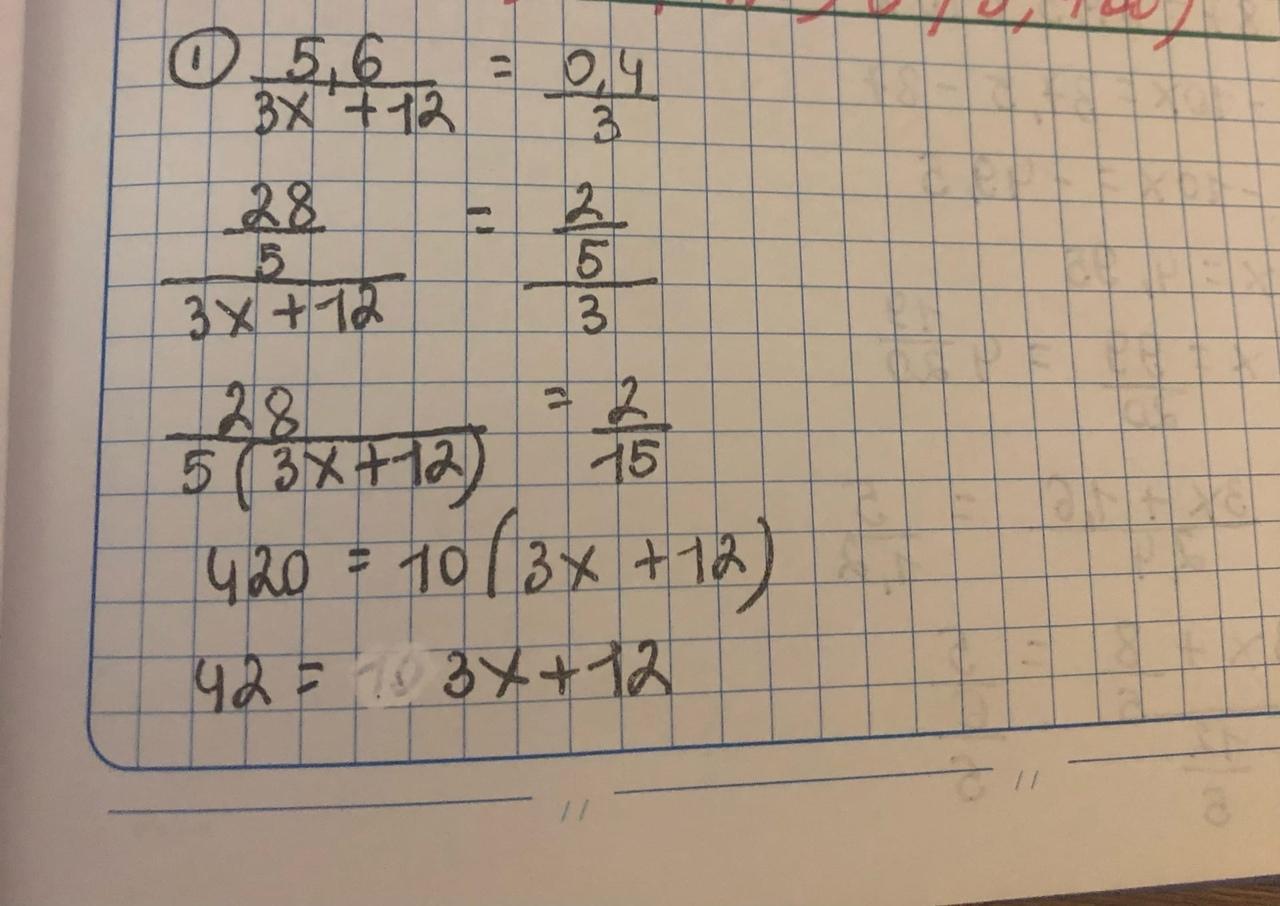 ① 5,6/(3x+12) = 0,4/3
(28/5)/(3x+12) = (2/5)/3
28/(5(3x+12)) = 2/15
420 = 10(3x+12)
42 = 3x+12